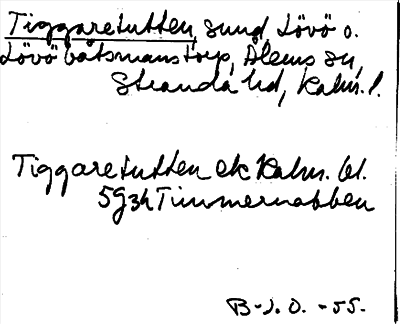 Tiggaretutten, sund Lövö o.
Lövö båtsmanstorp, Ålems sn,
Stranda hd, Kalm. l.
Tiggaretutten ek Kalm. bl.
5g3h Timmernabben
B-J.O. -55.